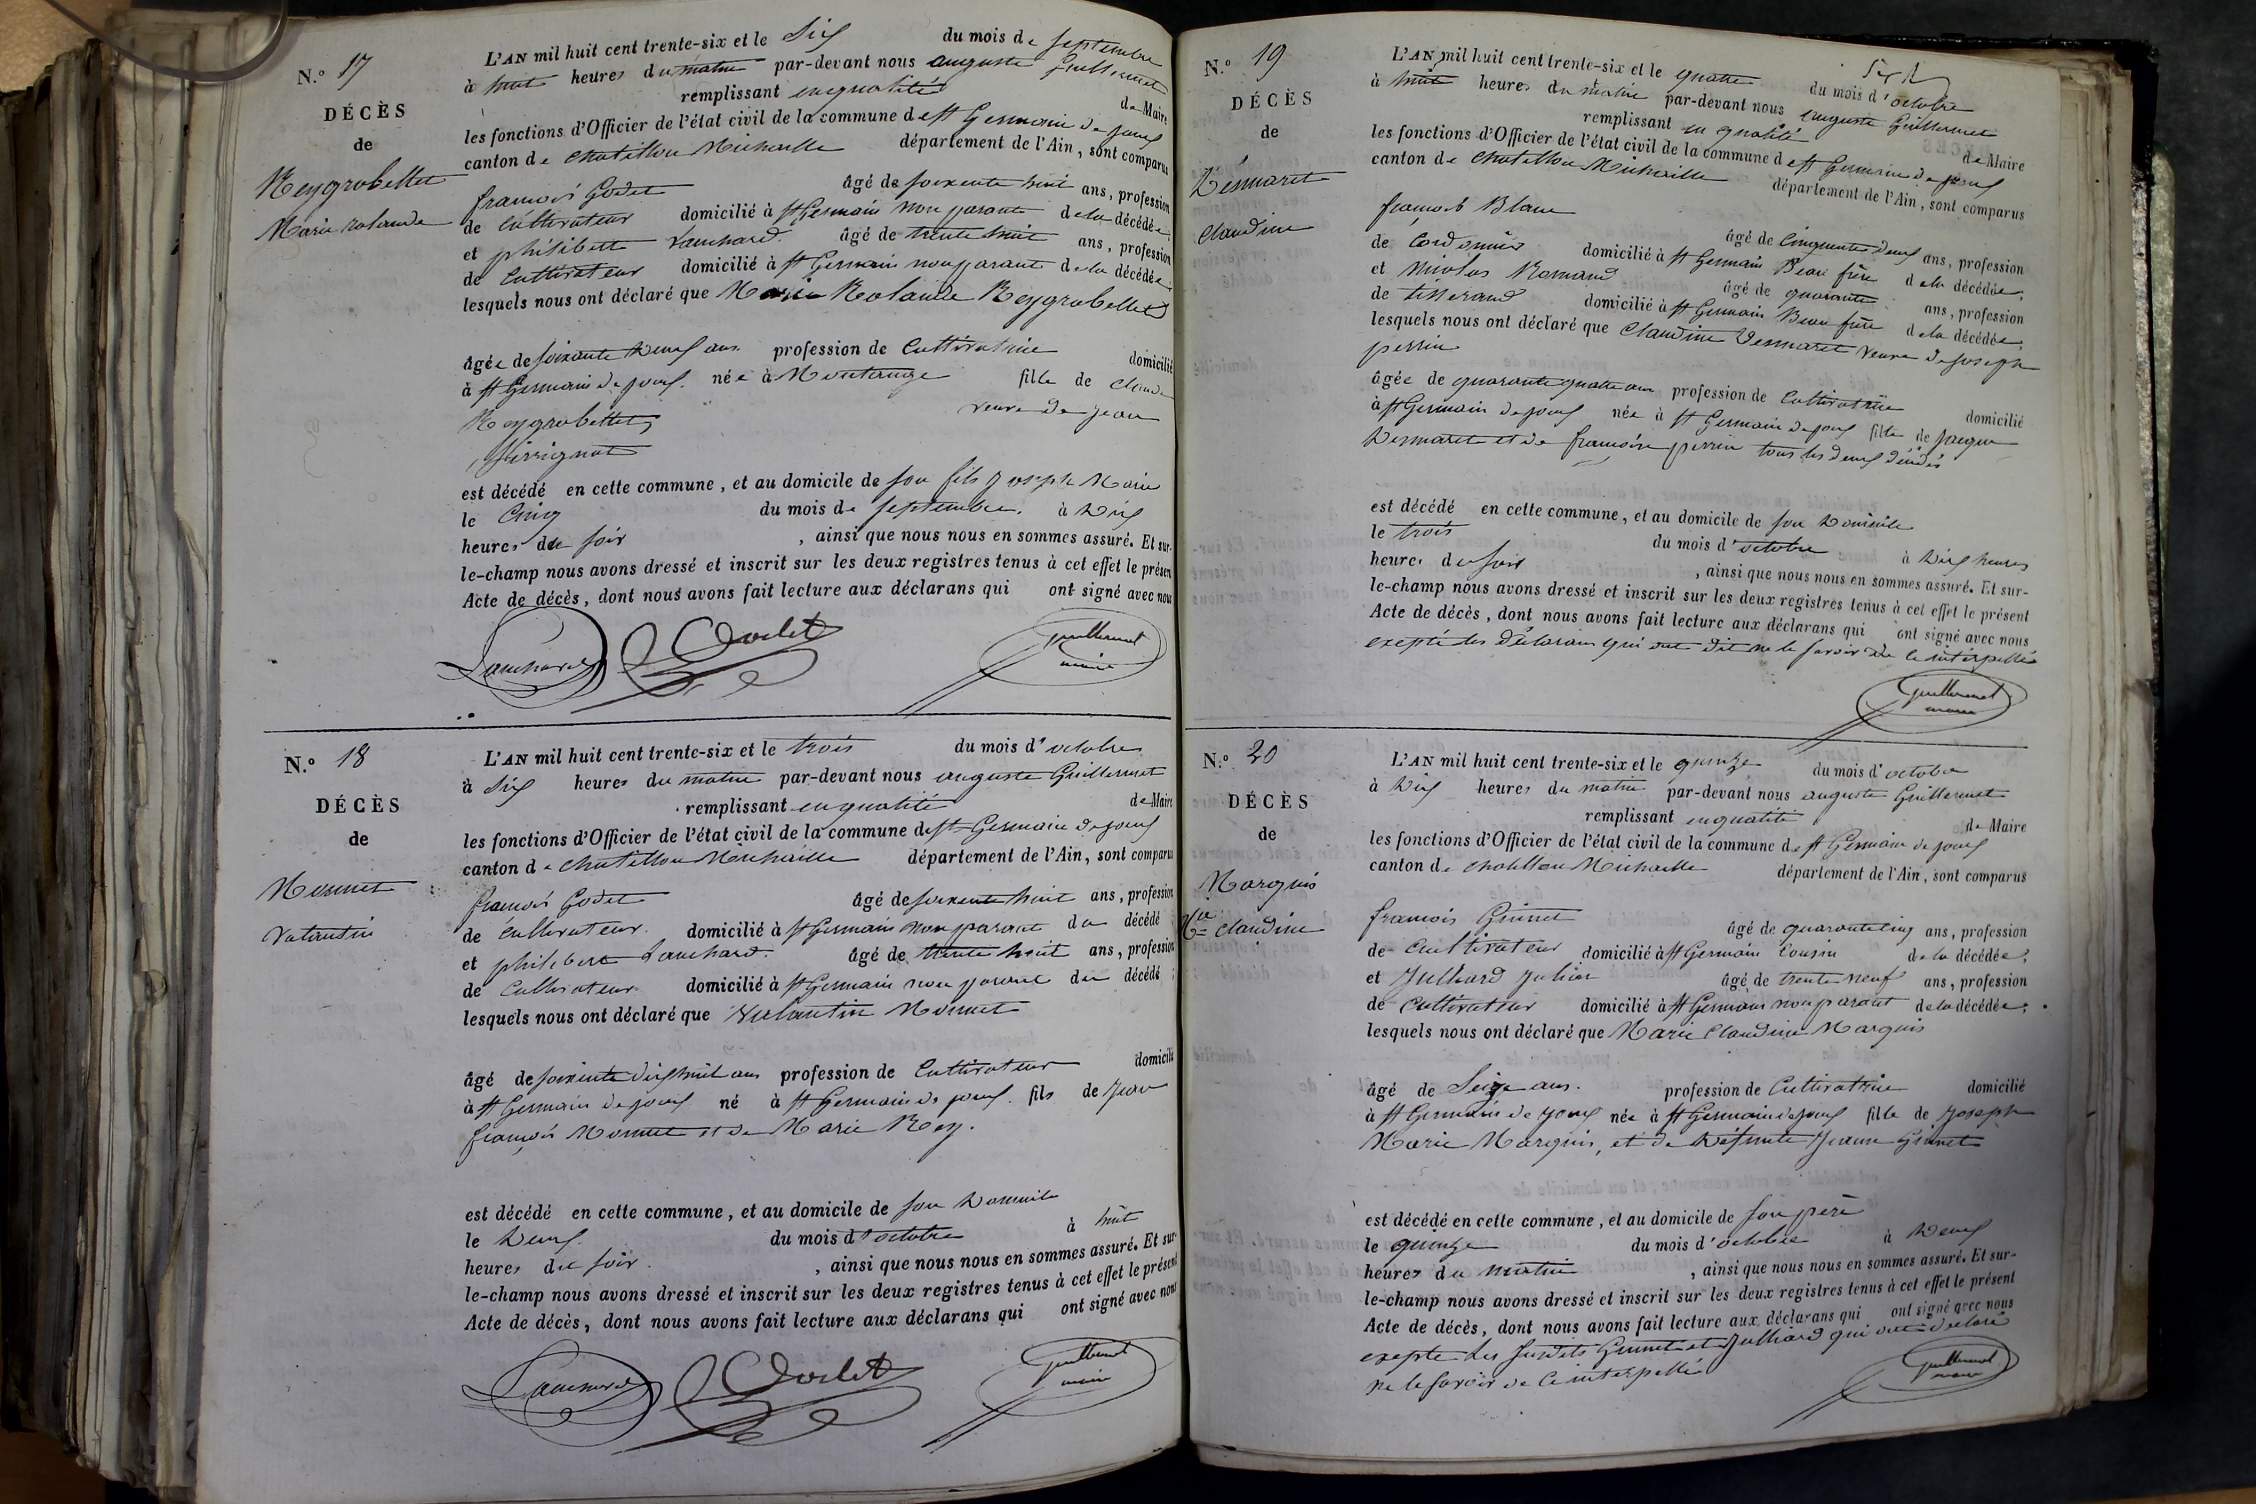 N.º 17
DÉCÈS
de
Reygrobellet
Marie rolande
L'AN mil huit cent trente-six et le six du mois de septembre
à huit heures du matin par-devant nous auguste Guillermet
remplissant en qualité de Maire
les fonctions d'Officier de l'état civil de la commune de st Germain de joux
canton de chatillon Michaille département de l'Ain, sont comparus
françois Godet âgé de soixante huit ans, profession
de cultivateur domicilié à st Germain non parant de la décédée,
et philibert Lanchard âgé de trente huit ans, profession
de cultivateur domicilié à st Germain non parant de la décédée,
lesquels nous ont déclaré que Marie Rolande Reygrobellet
âgée de soixante deux ans profession de cultivatrice domicilié
à st Germain de joux née à Montange fille de claude
Reygrobellet, veuve de jean
est décédé en cette commune, et au domicile de son fils joseph Marie
le cinq du mois de septembre à dix
heures du soir, ainsi que nous nous en sommes assuré. Et sur-
le-champ nous avons dressé et inscrit sur les deux registres tenus à cet effet le présent
Acte de décès, dont nous avons fait lecture aux déclarans qui ont signé avec nous
Lanchard Godet guillermet
maire
N.º 18
DÉCÈS
de
Monnet
Valantin
L'AN mil huit cent trente-six et le trois du mois d'octobre
à six heures du matin par-devant nous auguste Guillermet
remplissant en qualité de Maire
les fonctions d'Officier de l'état civil de la commune de st Germain de joux
canton de chatillon Michaille département de l'Ain, sont comparus
françois Godet âgé de soixante huit ans, profession
de cultivateur domicilié à st Germain non parant du décédé
et philibert Lanchard âgé de trente huit ans, profession
de cultivateur domicilié à st Germain non parant du décédé ;
lesquels nous ont déclaré que Valantin Monnet
âgé de soixante dix huit ans profession de cultivateur domicilié
à st Germain de joux né à st Germain de joux fils de jean
françois Monnet et de Marie Rey.
est décédé en cette commune, et au domicile de son domicile
le deux du mois d'octobre à huit
heures du soir, ainsi que nous nous en sommes assuré. Et sur-
le-champ nous avons dressé et inscrit sur les deux registres tenus à cet effet le présent
Acte de décès, dont nous avons fait lecture aux déclarans qui ont signé avec nous
Lanchard Godet guillermet
maire
N.º 19
DÉCÈS
de
Desmaret
claudine
L'AN mil huit cent trente-six et le quatre du mois d'octobre
à huit heures du matin par-devant nous auguste Guillermet
remplissant en qualité de Maire
les fonctions d'Officier de l'état civil de la commune de st Germain de joux
canton de chatillon Michaille département de l'Ain, sont comparus
françois Blanc âgé de cinquante deux ans, profession
de cordonnier domicilié à st Germain Beau frère de la décédée,
et nicolas Romand âgé de quarante ans, profession
de tisserand domicilié à st Germain Beau frère de la décédée,
lesquels nous ont déclaré que claudine Desmaret veuve de joseph
perrin
âgée de quarante quatre ans profession de cultivatrice domicilié
à st Germain de joux née à st Germain de joux fille de jaque
Desmaret et de françoise perrin tous les deux dédés
est décédé en cette commune, et au domicile de son domicile
le trois du mois d'octobre à dix heures
heures du soir, ainsi que nous nous en sommes assuré. Et sur-
le-champ nous avons dressé et inscrit sur les deux registres tenus à cet effet le présent
Acte de décès, dont nous avons fait lecture aux déclarans qui ont signé avec nous
exepté les déclarans qui ont dit ne le savoir de ce interpellés
guillermet
maire
N.º 20
DÉCÈS
de
Marquis
Mie claudine
L'AN mil huit cent trente-six et le quinze du mois d'octobre
à dix heures du matin par-devant nous auguste Guillermet
remplissant en qualité de Maire
les fonctions d'Officier de l'état civil de la commune de st Germain de joux
canton de chatillon Michaille département de l'Ain, sont comparus
françois Grinet âgé de quarante cinq ans, profession
de cultivateur domicilié à st Germain cousin de la décédée,
et Julliard Julien âgé de trente neuf ans, profession
de cultivateur domicilié à st Germain non parant de la décédée ;
lesquels nous ont déclaré que Marie Claudine Marquis
âgé de Seize ans. profession de cultivatrice domicilié
à st Germain de joux née à st Germain de joux fille de joseph
Marie Marquis, et de défunte Jeanne Grinet
est décédé en cette commune, et au domicile de son père
le quinze du mois d'octobre à deux
heures du matin, ainsi que nous nous en sommes assuré. Et sur-
le-champ nous avons dressé et inscrit sur les deux registres tenus à cet effet le présent
Acte de décès, dont nous avons fait lecture aux déclarans qui ont signé avec nous
exepté les susdits Grinet et Julliard qui ont déclaré
ne le savoir de ce interpellé
guillermet
maire